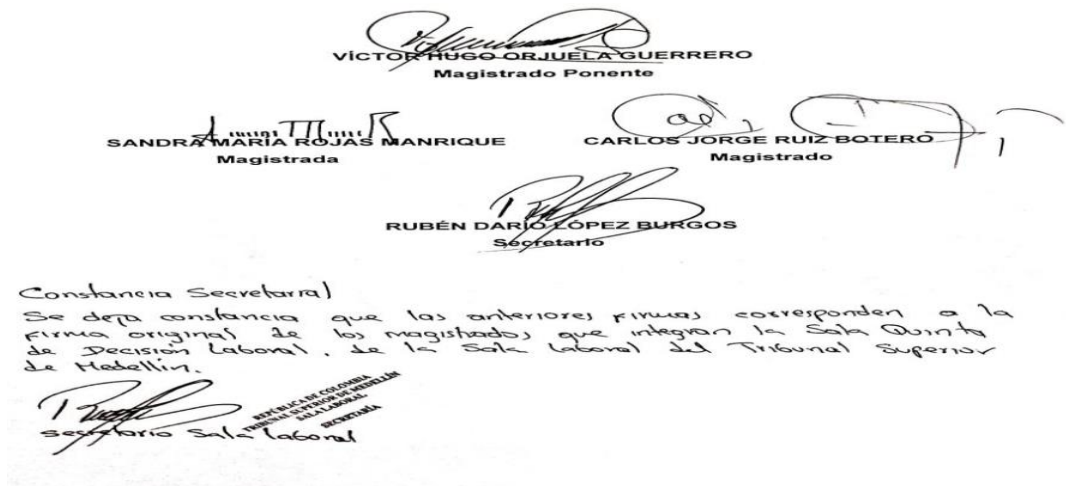 VÍCTOR HUGO ORJUELA GUERRERO
Magistrado Ponente
SANDRA MARIA ROJAS MANRIQUE
Magistrada
CARLOS JORGE RUIZ BOTERO
Magistrado
RUBÉN DARÍO LÓPEZ BURGOS
Secretario
Constancia Secretarial
Se deja constancia que las anteriores firmas corresponden a la
firma original de los magistrados que integran la Sala Quinta
de Decisión Laboral, de la Sala Laboral del Tribunal Superior
de Medellín.
REPÚBLICA DE COLOMBIA
TRIBUNAL SUPERIOR DE MEDELLÍN
SALA LABORAL
SECRETARÍA
secretario Sala Laboral